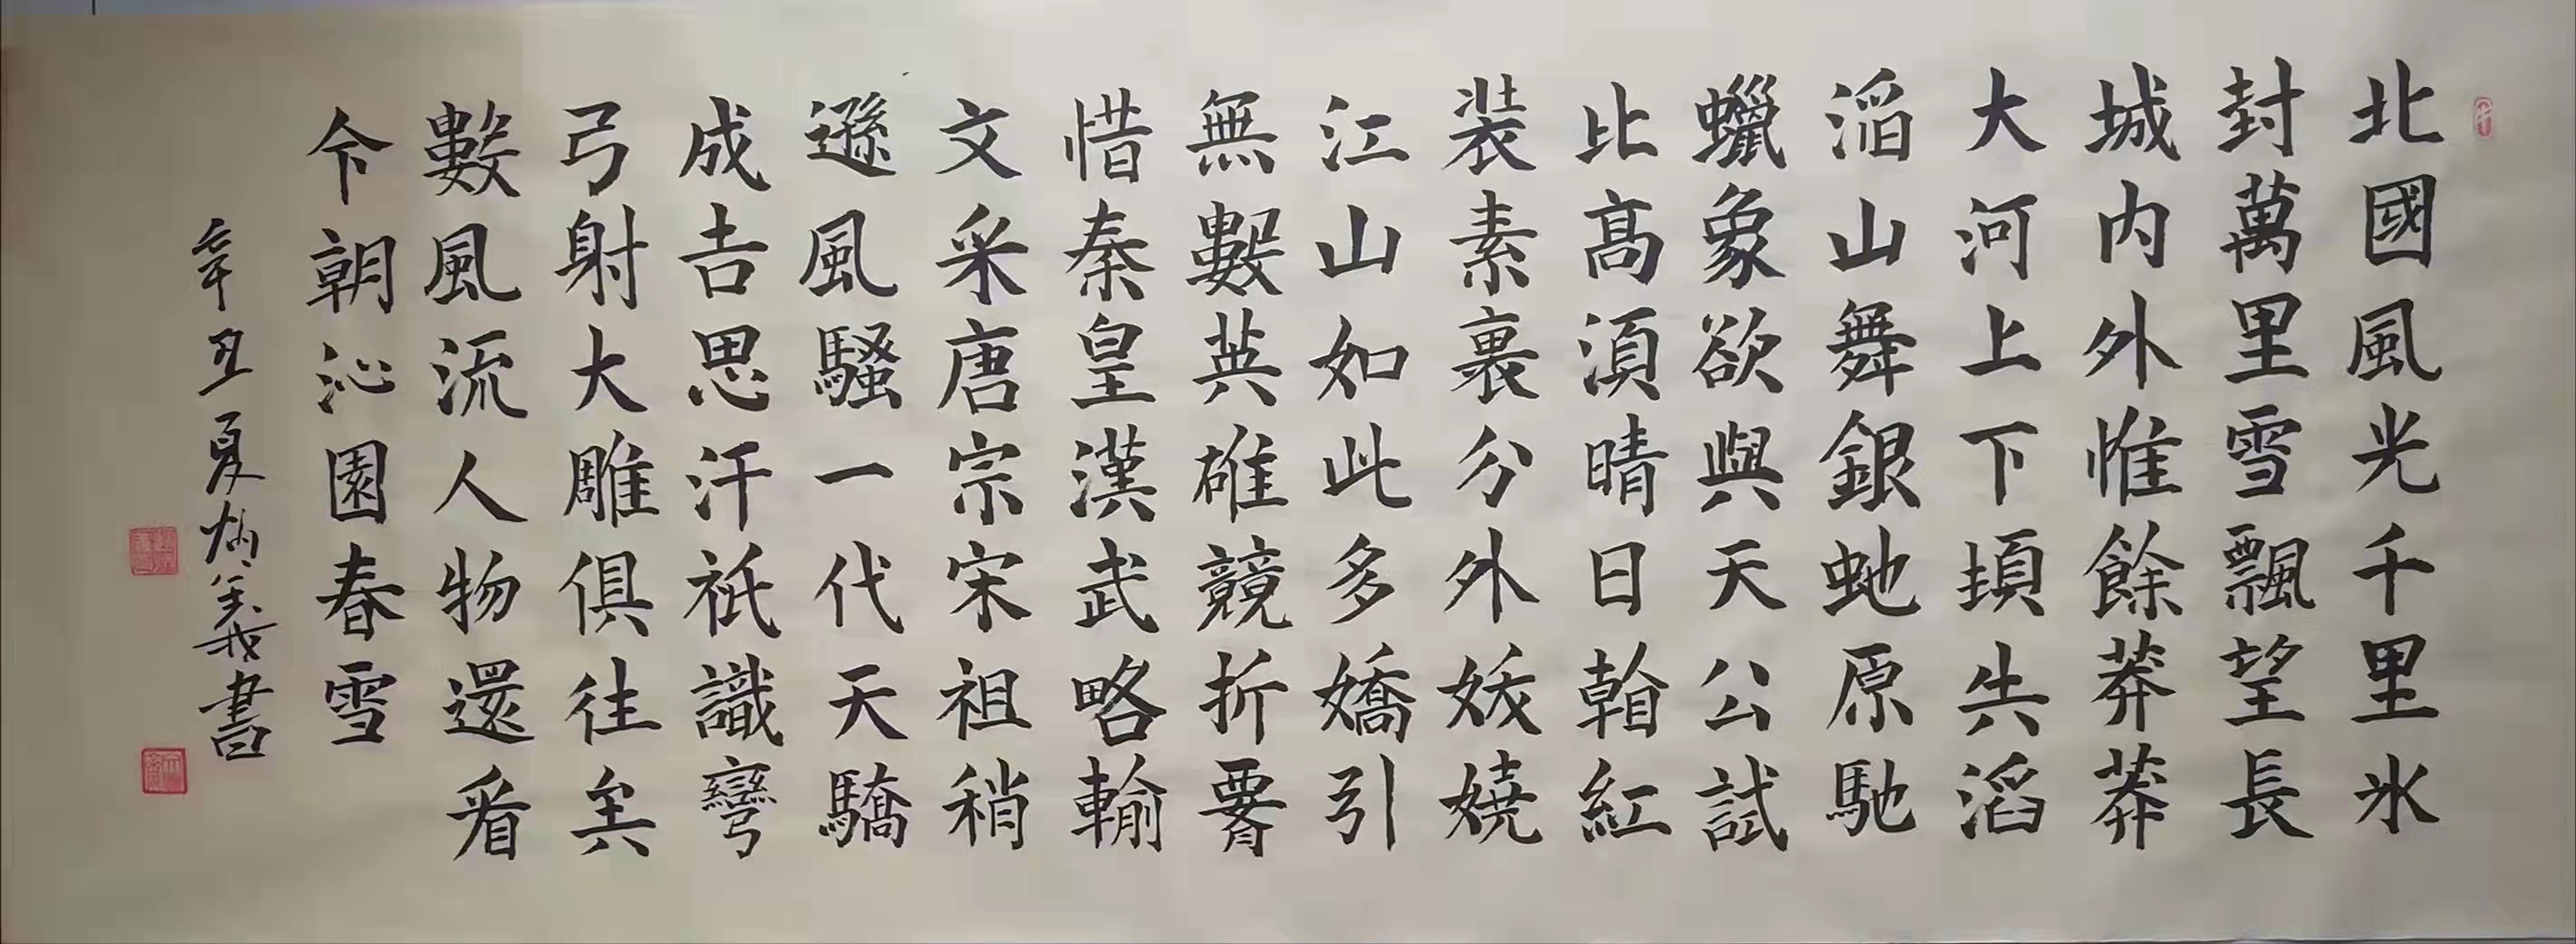 北國風光千里氷
封萬里雪飄望長
城内外惟餘莽莽
大河上下頓失滔
滔山舞銀虵原馳
蠟象欲與天公試
比高湏晴日看紅
裝素裹分外妖嬈
江山如此多嬌引
無數英雄競折要
惜秦皇漢武略輸
文采唐宗宋祖稍
遜風騷一代天驕
成吉思汗祇識彎
弓射大雕俱往矣
數風流人物還看
今朝沁園春雪
辛丑夏炳義書